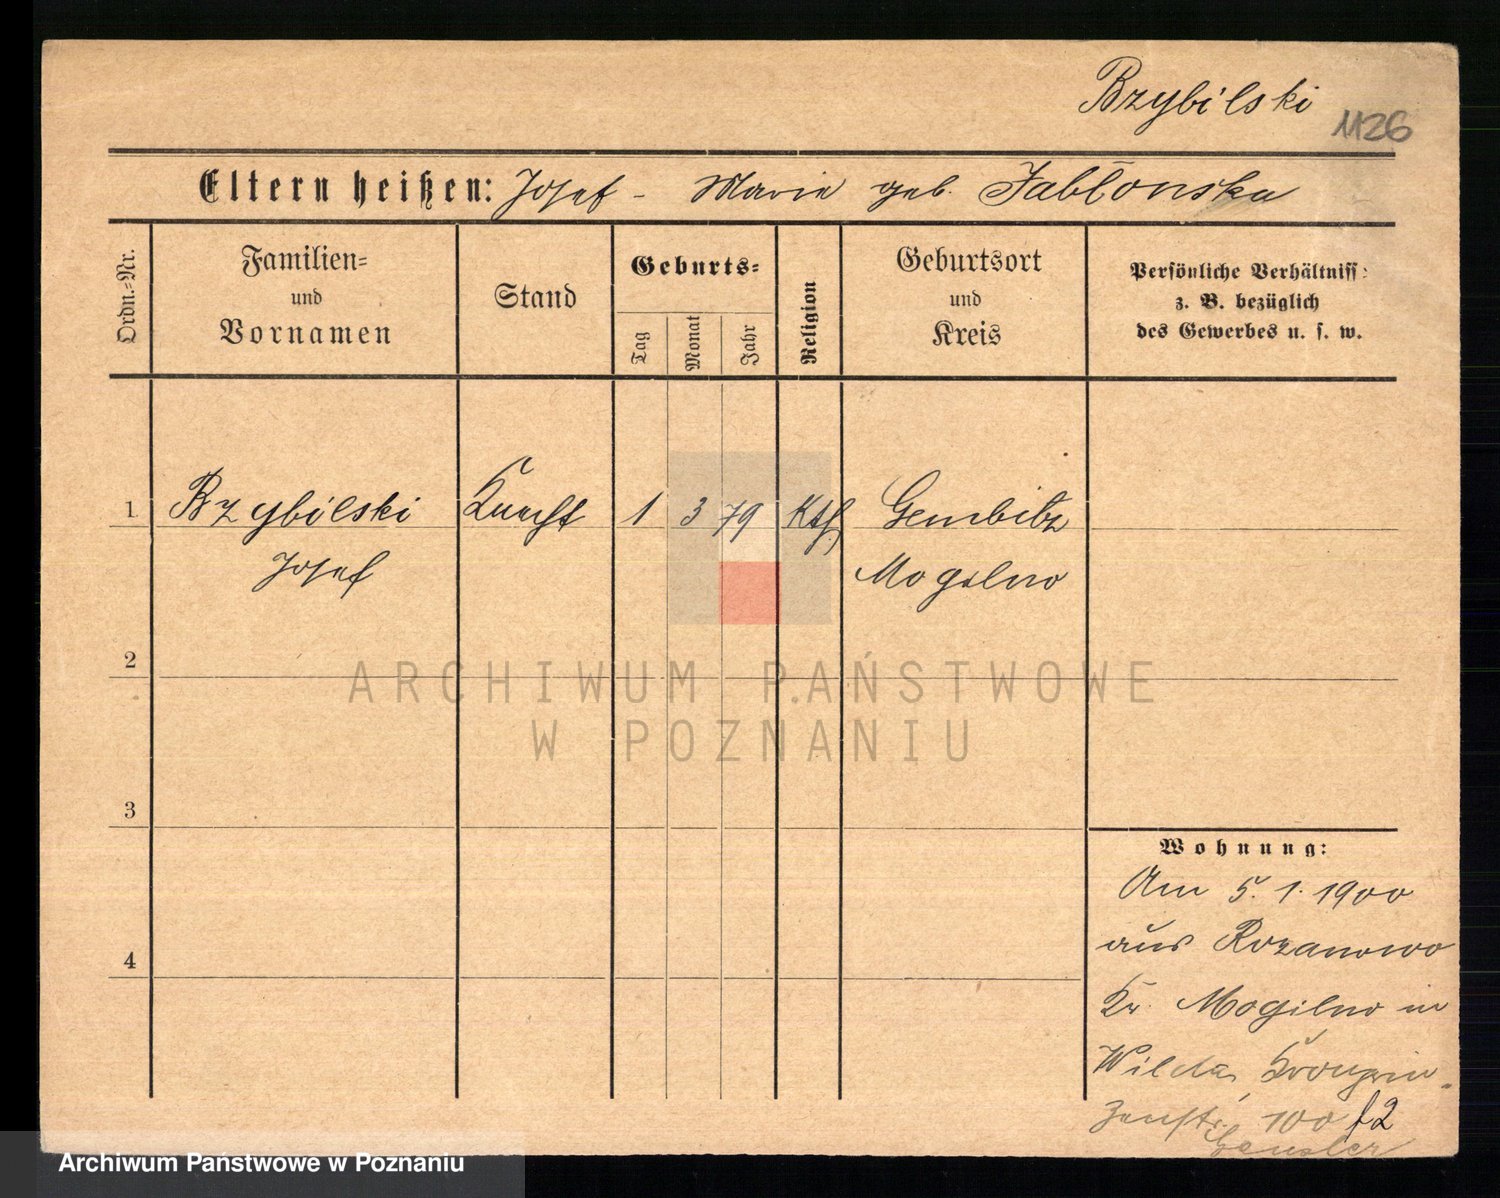 Brzybilski
1126
Eltern heißen: Josef - Marie geb. Jabłonska
Ordn.-Nr.
Familien-
und
Vornamen
Stand
Geburts-
Tag
Monat
Jahr
Religion
Geburtsort
und
Kreis
Persönliche Verhältniss:
z. B. bezüglich
des Gewerbes u. s. w.
1 Brzybilski Knecht 1 3 79 Kth Gembitz
Josef Mogilno
2
ARCHIWUM PAŃSTWOWE
W POZNANIU
3
Wohnung:
Am 5. 1. 1900
aus Rozanowo
4
Kr. Mogilno in
Wilda, Kronprin-
zenstr. 100 f2
Archiwum Państwowe w Poznaniu